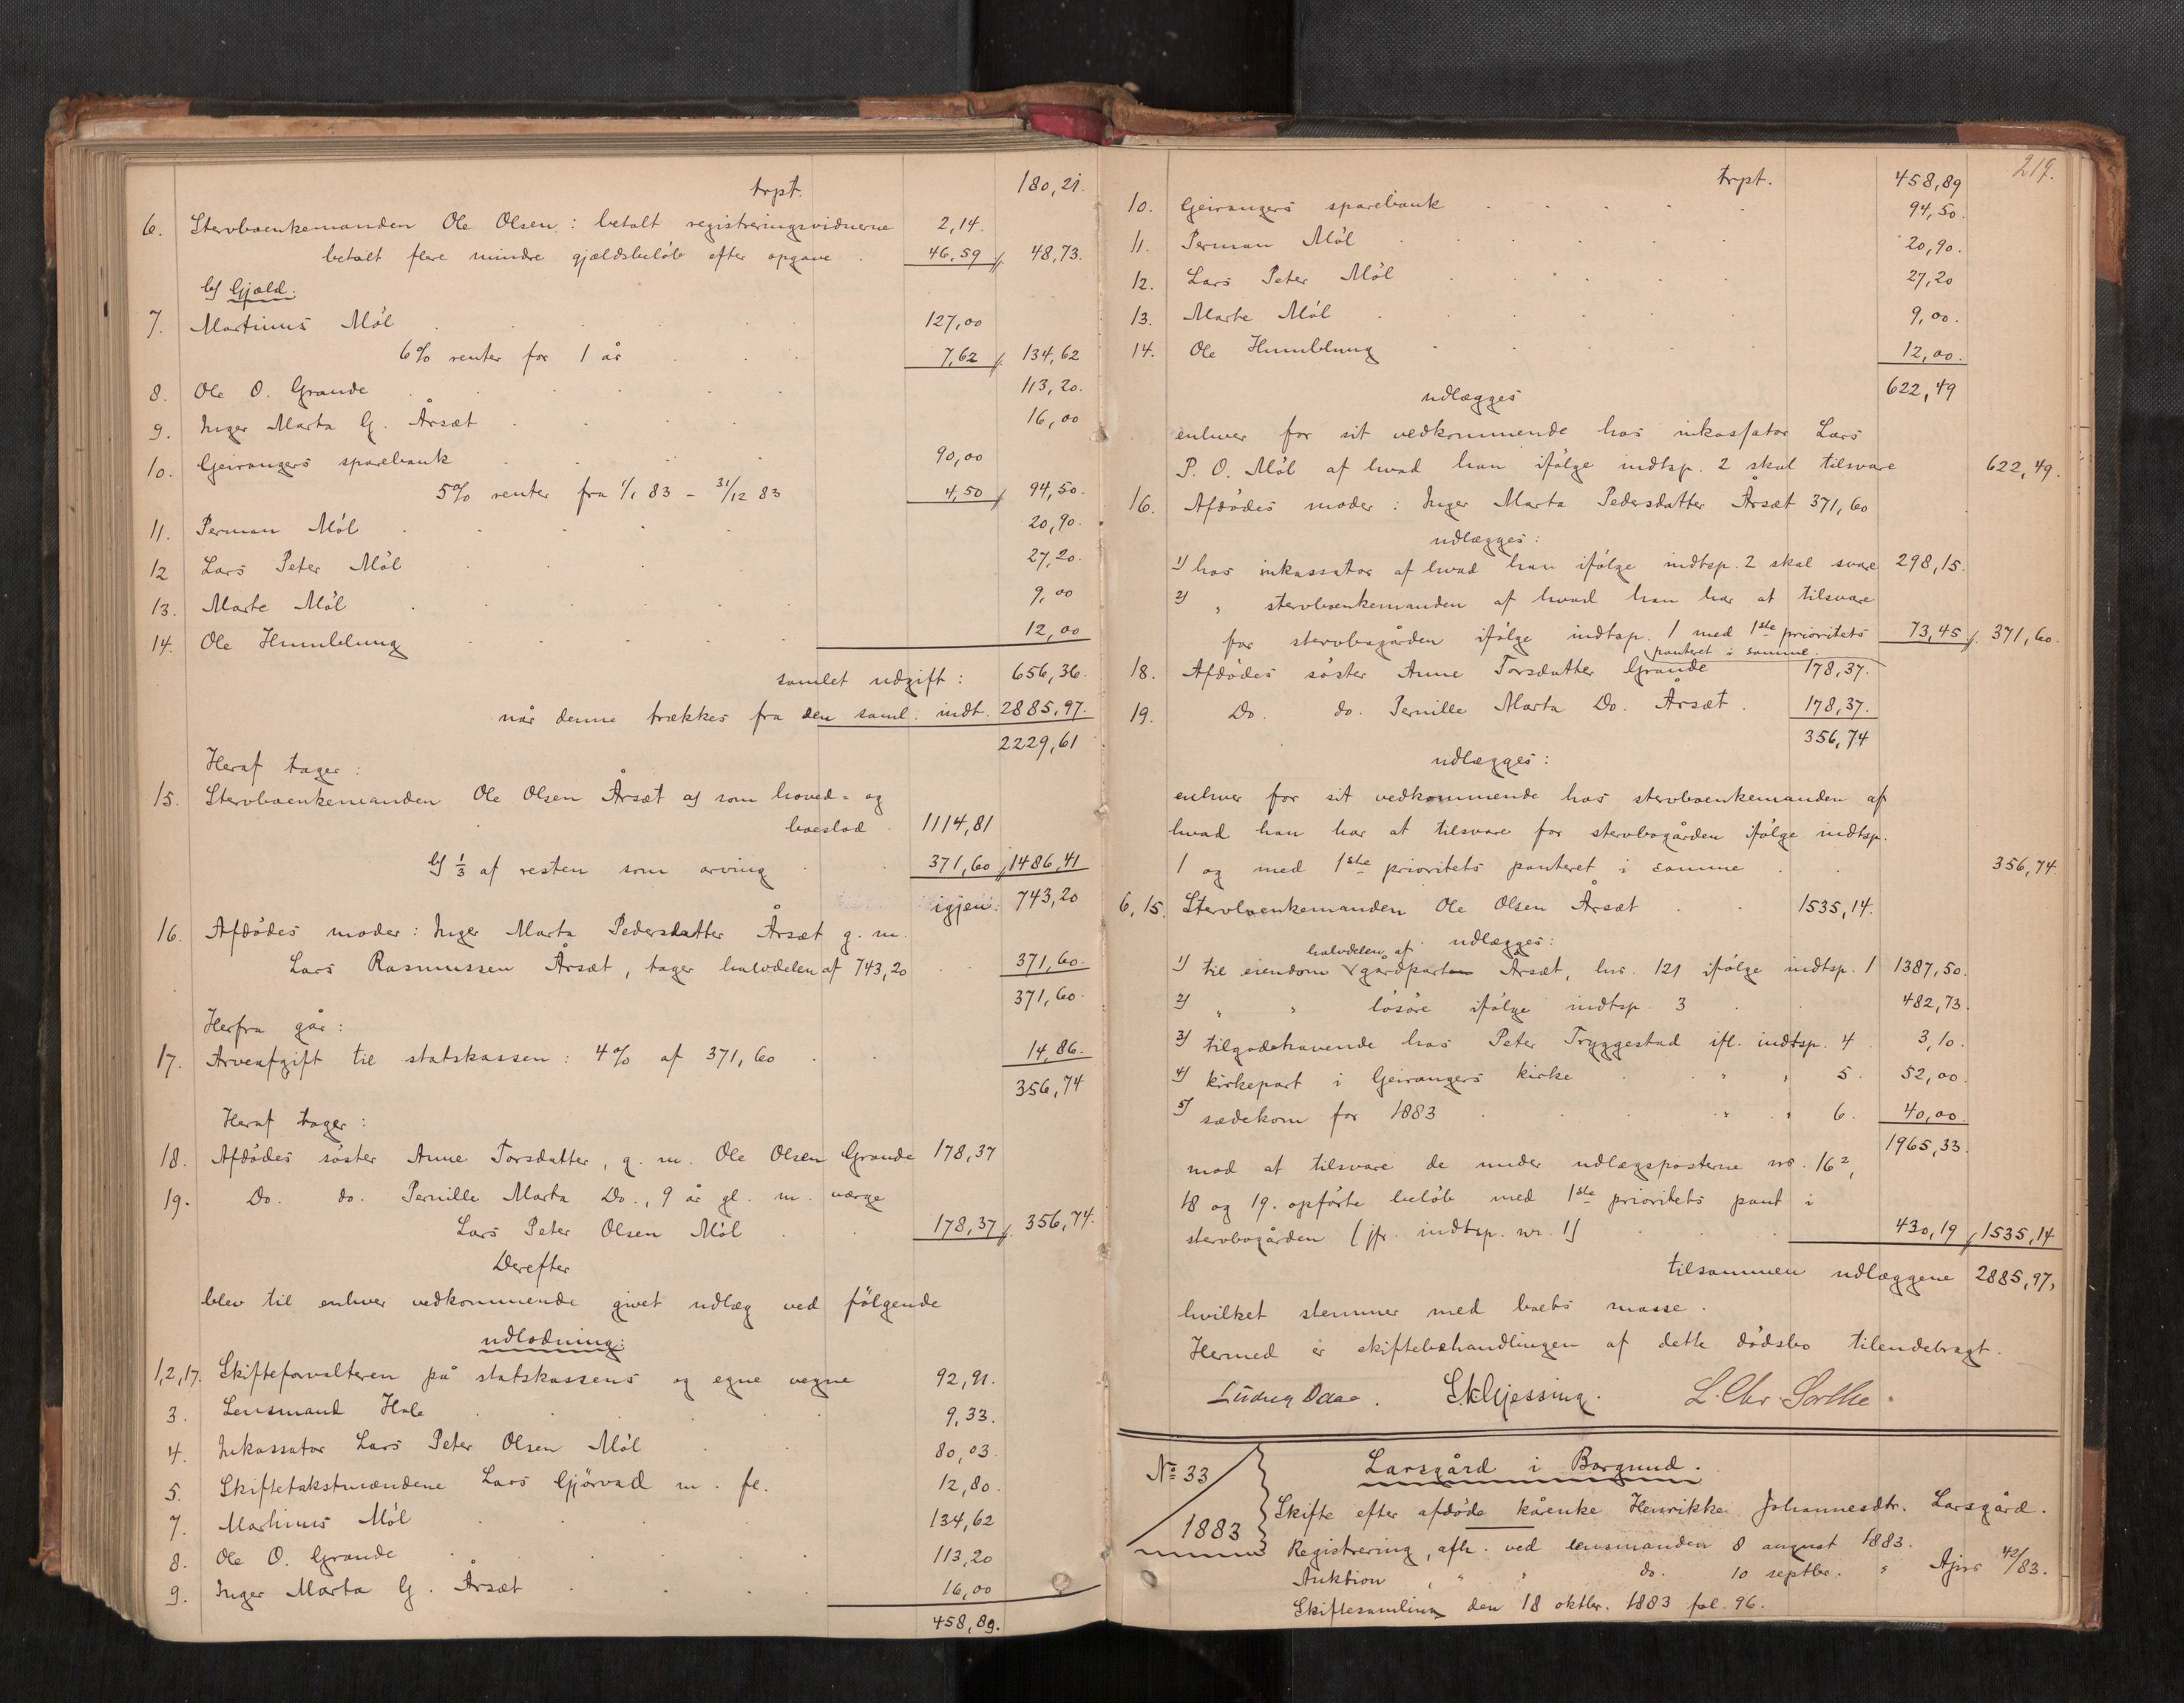 trpt. 180,21.
6. Stervboenkemanden Ole Olsen: betalt registreringsvidnerne 2,14.
betalt flere mindre gjældsbeløb efter opgave . 46,59 /. 48,73.
b) Gjæld:
7. Martinus Möl 127,00
6% renter for 1 år 7,62 /. 134,62
8. Ole O. Grande 113,20.
9. Inger Marta G. Årsæt 16,00
10. Geirangers sparebank 90,00
5% renter fra 1/1 83 - 31/12 83 4,50 /. 94,50.
11. Perman Möl 20,90.
12 Lars Peter Möl 27,20.
13. Marte Möl 9,00
14. Ole Humblung 12,00
samlet udgift: 656,36.
når denne trækkes fra den saml. indt. 2885,97.
2229,61
Heraf tager:
15. Stervboenkemanden Ole Olsen Årsæt a) som hoved= og
boeslod 1114,81
b) 1/3 af resten som arving 371,60 /. 1486,41
igjen: 743,20
16. Afdödes moder: Inger Marta Pedersdatter Årsæt g. m.
Lars Rasmussen Årsæt, tager halvdelen af 743,20 371,60.
371,60.
Herfra går:
17. Arveafgift til statskassen: 4% af 371,60 14,86.
356,74
Heraf tager:
18. Afdödes söster Anne Torsdatter, g. m. Ole Olsen Grande 178,37
19. Do. do. Pernille Marta Do., 9 år gl. m. værge
Lars Peter Olsen Möl 178,37 /. 356,74.
Derefter
blev til enhver vedkommende givet udlæg ved fölgende
udlodning:
1,2,17. Skifteforvalteren på statskassens og egne vegne 92,91.
3. Lensmand Hole 9,33.
4. Inkassator Lars Peter Olsen Möl 80,03.
5. Skiftetakstmændene Lars Gjörvad m. fl. 12,80.
7. Martinus Möl 134,62
8. Ole O. Grande 113,20
9. Inger Marta G. Årsæt 16,00
458,89.
217.
trpt. 458,89
10. Geirangers sparebank 94,50.
11. Perman Möl 20,90.
12. Lars Peter Möl 27,20
13. Marte Möl 9,00.
14. Ole Humblung 12,00.
622,49
udlægges
enhver for sit vedkommende hos inkassator Lars
P. O. Möl af hvad han ifölge indtsp. 2 skal tilsvare 622,49.
16. Afdödes moder: Inger Marta Pedersdatter Årsæt 371,60
udlægges:
1) hos inkassator af hvad han ifölge indtsp. 2 skal svare 298,15.
2) " stervboenkemanden af hvad han har at tilsvare
for stervbogården ifölge indtsp. 1 med 1ste prioritets 73,45 /. 371,60.
panteret i samme.
18. Afdödes söster Anne Torsdatter Grande 178,37.
19. Do. do. Pernille Marta Do. Årsæt. 178,37.
356,74
udlægges:
enhver for sit vedkommende hos stervboenkemanden af
hvad han har at tilsvare for stervbogården ifölge indtsp.
1 og med 1ste prioritets panteret i samme 356,74.
6,15. Stervboenkemanden Ole Olsen Årsæt 1535,14.
udlægges:
halvdelen af
1) til eiendom gårdparten Årsæt, lnr. 121 ifölge indtsp. 1 1387,50.
2) " " lösöre ifölge indtsp. 3 482,73.
3) tilgodehavende hos Peter Tryggestad ifl. indtsp. 4 3,10.
4) kirkepart i Geirangers kirke " " 5. 52,00.
5) sædekorn for 1883 " " 6. 40,00.
1965,33.
mod at tilsvare de under udlægsposterne nr. 16²,
18 og 19. opförte belöb med 1ste prioritets pant i
stervbogården (jfr. indtsp. nr. 1) 430,19 /. 1535,14
tilsammen udlæggene 2885,97,
hvilket stemmer med boets masse.
Hermed er skiftebehandlingen af dette dödsbo tilendebragt.
Ludvig Daae. L. Chr. Sorthe.
No 33
1883
Larsgård i Borgund.
Skifte efter afdöde kårenke Henrikke Johannesdtr. Larsgård.
Registrering, afh. ved lensmanden 8 august 1883.
Auktion , " " do. 10 septbr. " Ajns 42/83.
Skiftesamling den 18 oktbr. 1883 fol. 96.